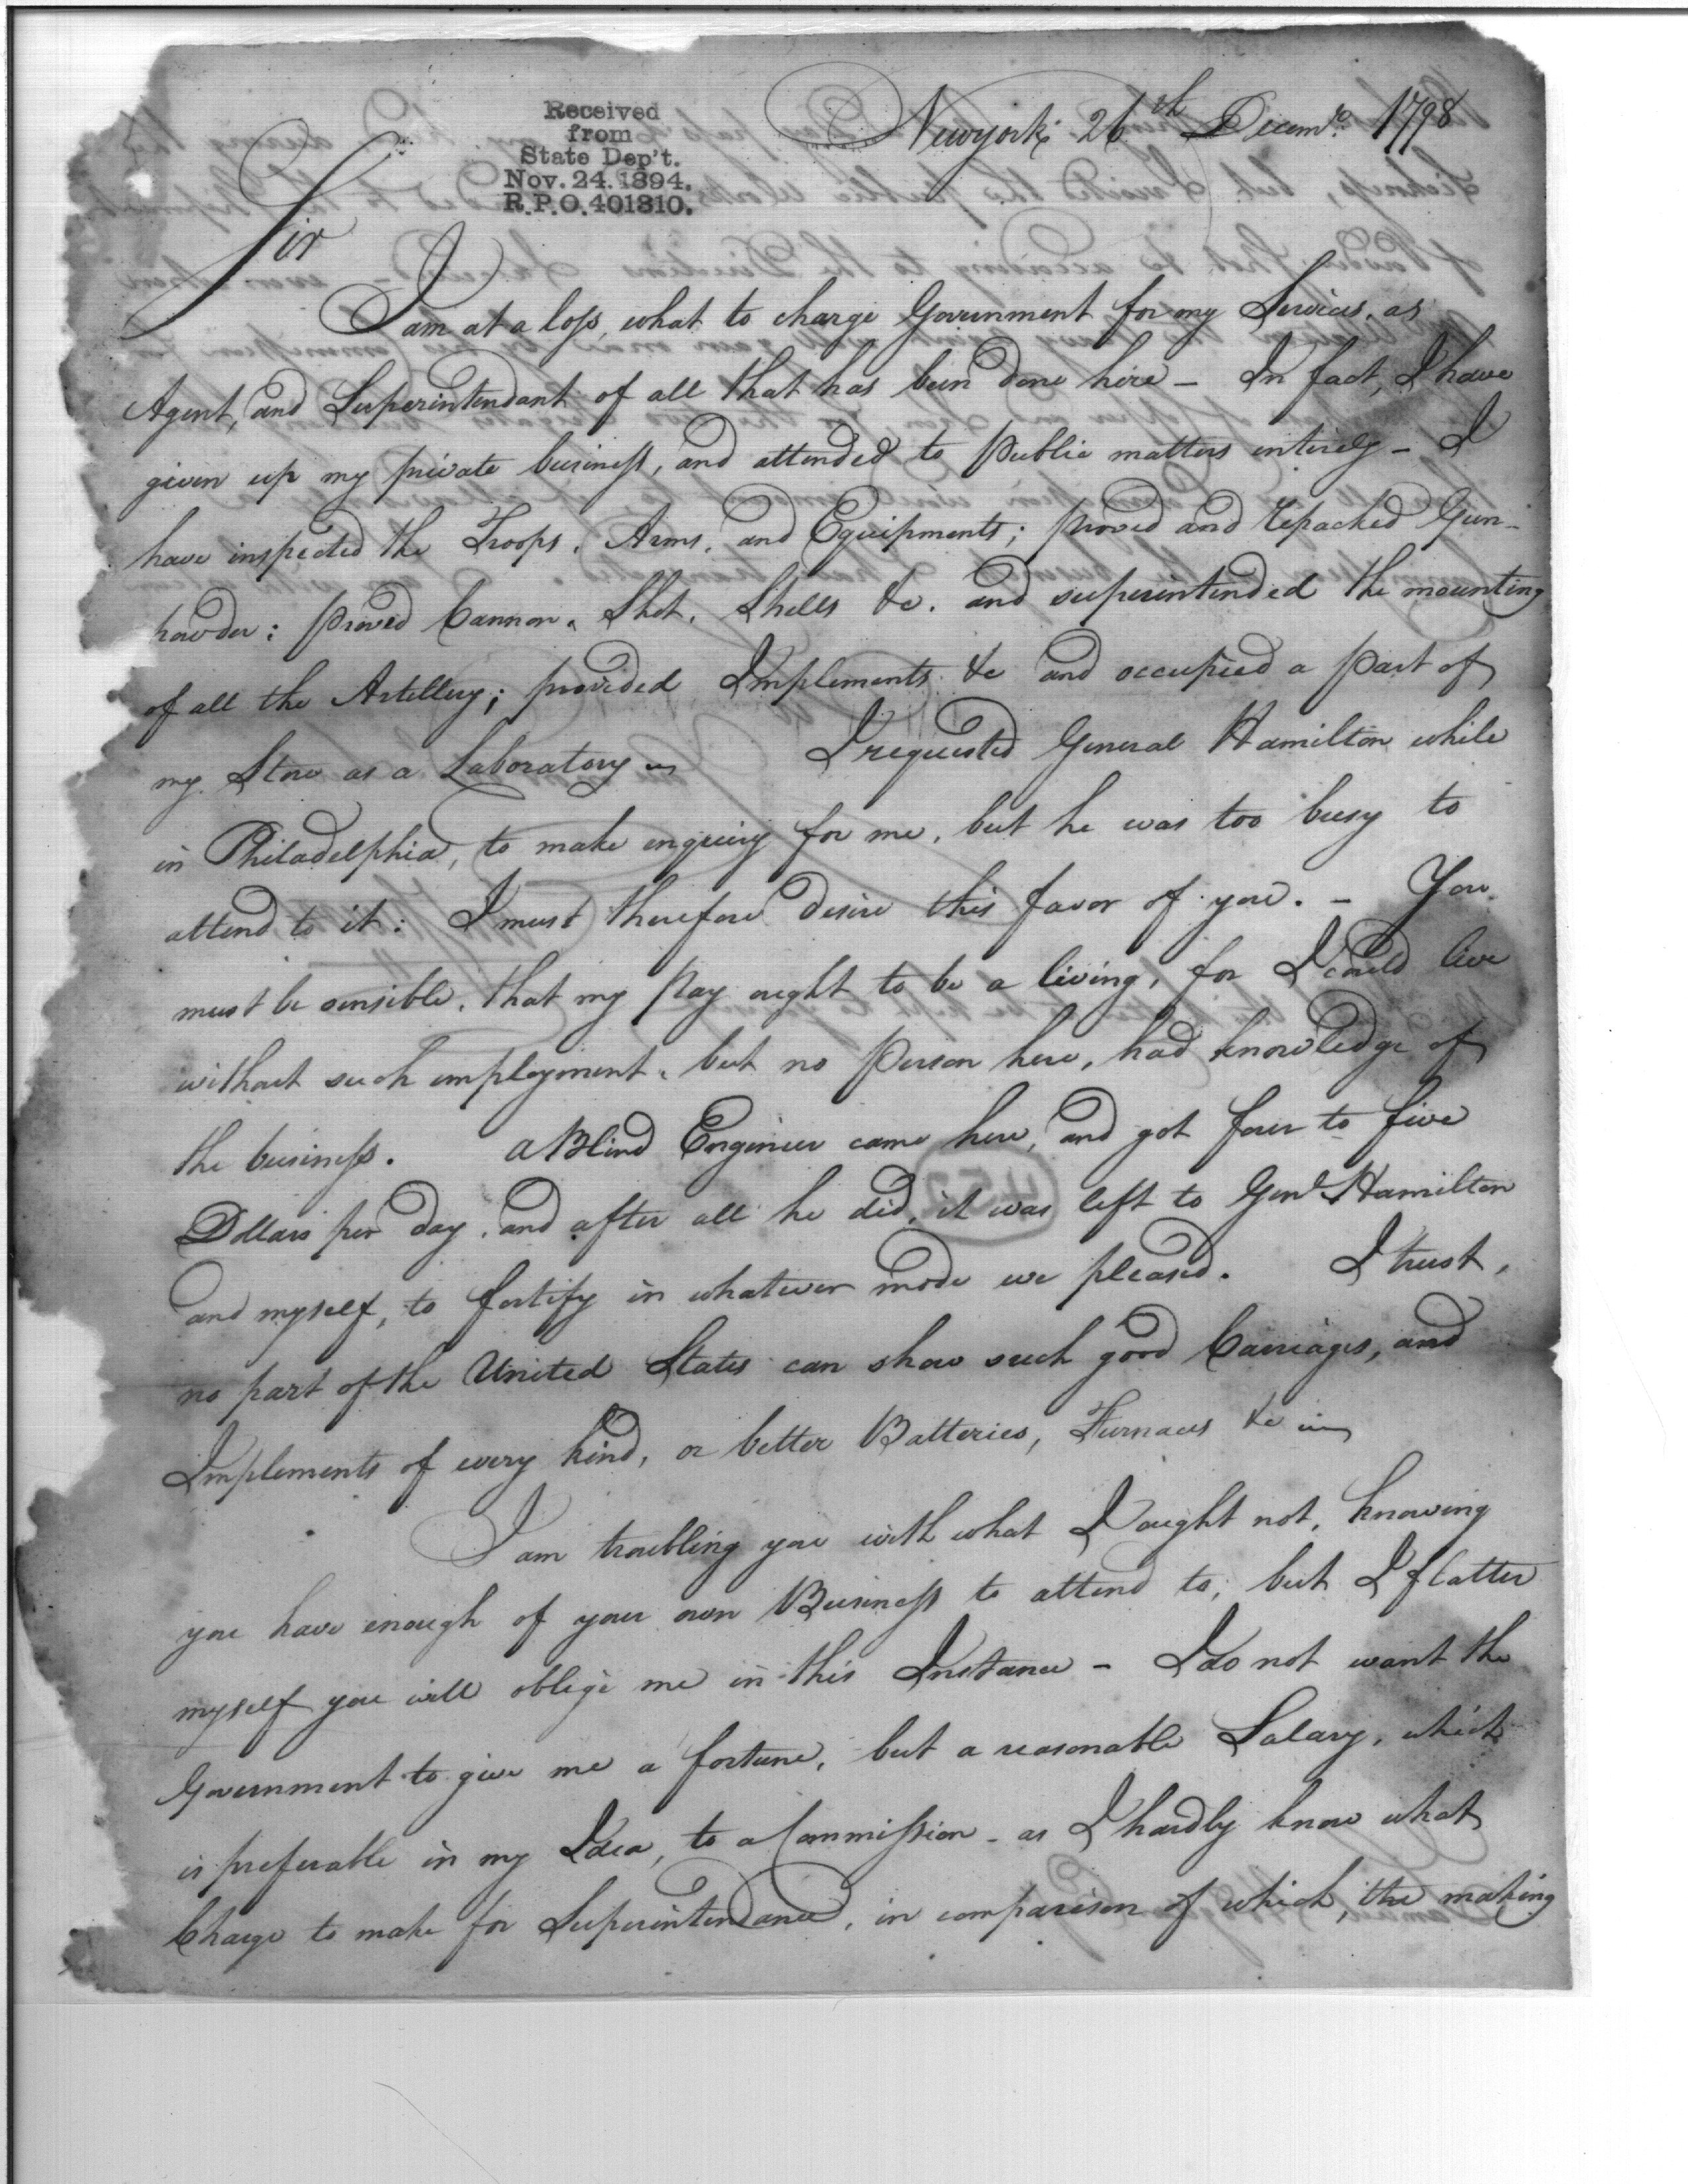 Newyork, 26th Decemr. 1798
Received
from
State Dep't.
Nov. 24. 1894.
R.P.O. 401310.
Sir
I am at a loss, what to charge Government for my Services, as
Agent, and Superintendant of all that has been done here – In fact, I have
given up my private business, and attended to Public matters entirely – I
have inspected the Troops, Arms, and Equipments; proved and repacked Gun-
powder: proved Cannon, Shot, Shells &c. and superintended the mounting
of all the Artillery; provided Implements &c and occupied a part of
my Store as a Laboratory – I requested General Hamilton while
in Philadelphia, to make enquiry for me, but he was too busy to
attend to it: I must therefore desire this favor of you. – You
must be sensible, that my Pay ought to be a living, for I could live
without such employment, but no Person here, had knowledge of
the business. A Blind Engineer came here, and got four to five
Dollars per day, and after all he did, it was left to Genl. Hamilton
and myself, to fortify in whatever mode we pleased. I trust,
no part of the United States can show such good Carriages, and
Implements of every kind, or better Batteries, Furnaces &c
I am troubling you with what I ought not, knowing
you have enough of your own Business to attend to, but I flatter
myself you will oblige me in this Instance – I do not want the
Government to give me a fortune, but a reasonable Salary, which
is preferable in my Idea, to a Commission – as I hardly know what
Charge to make for Superintendance, in comparison of which, the making